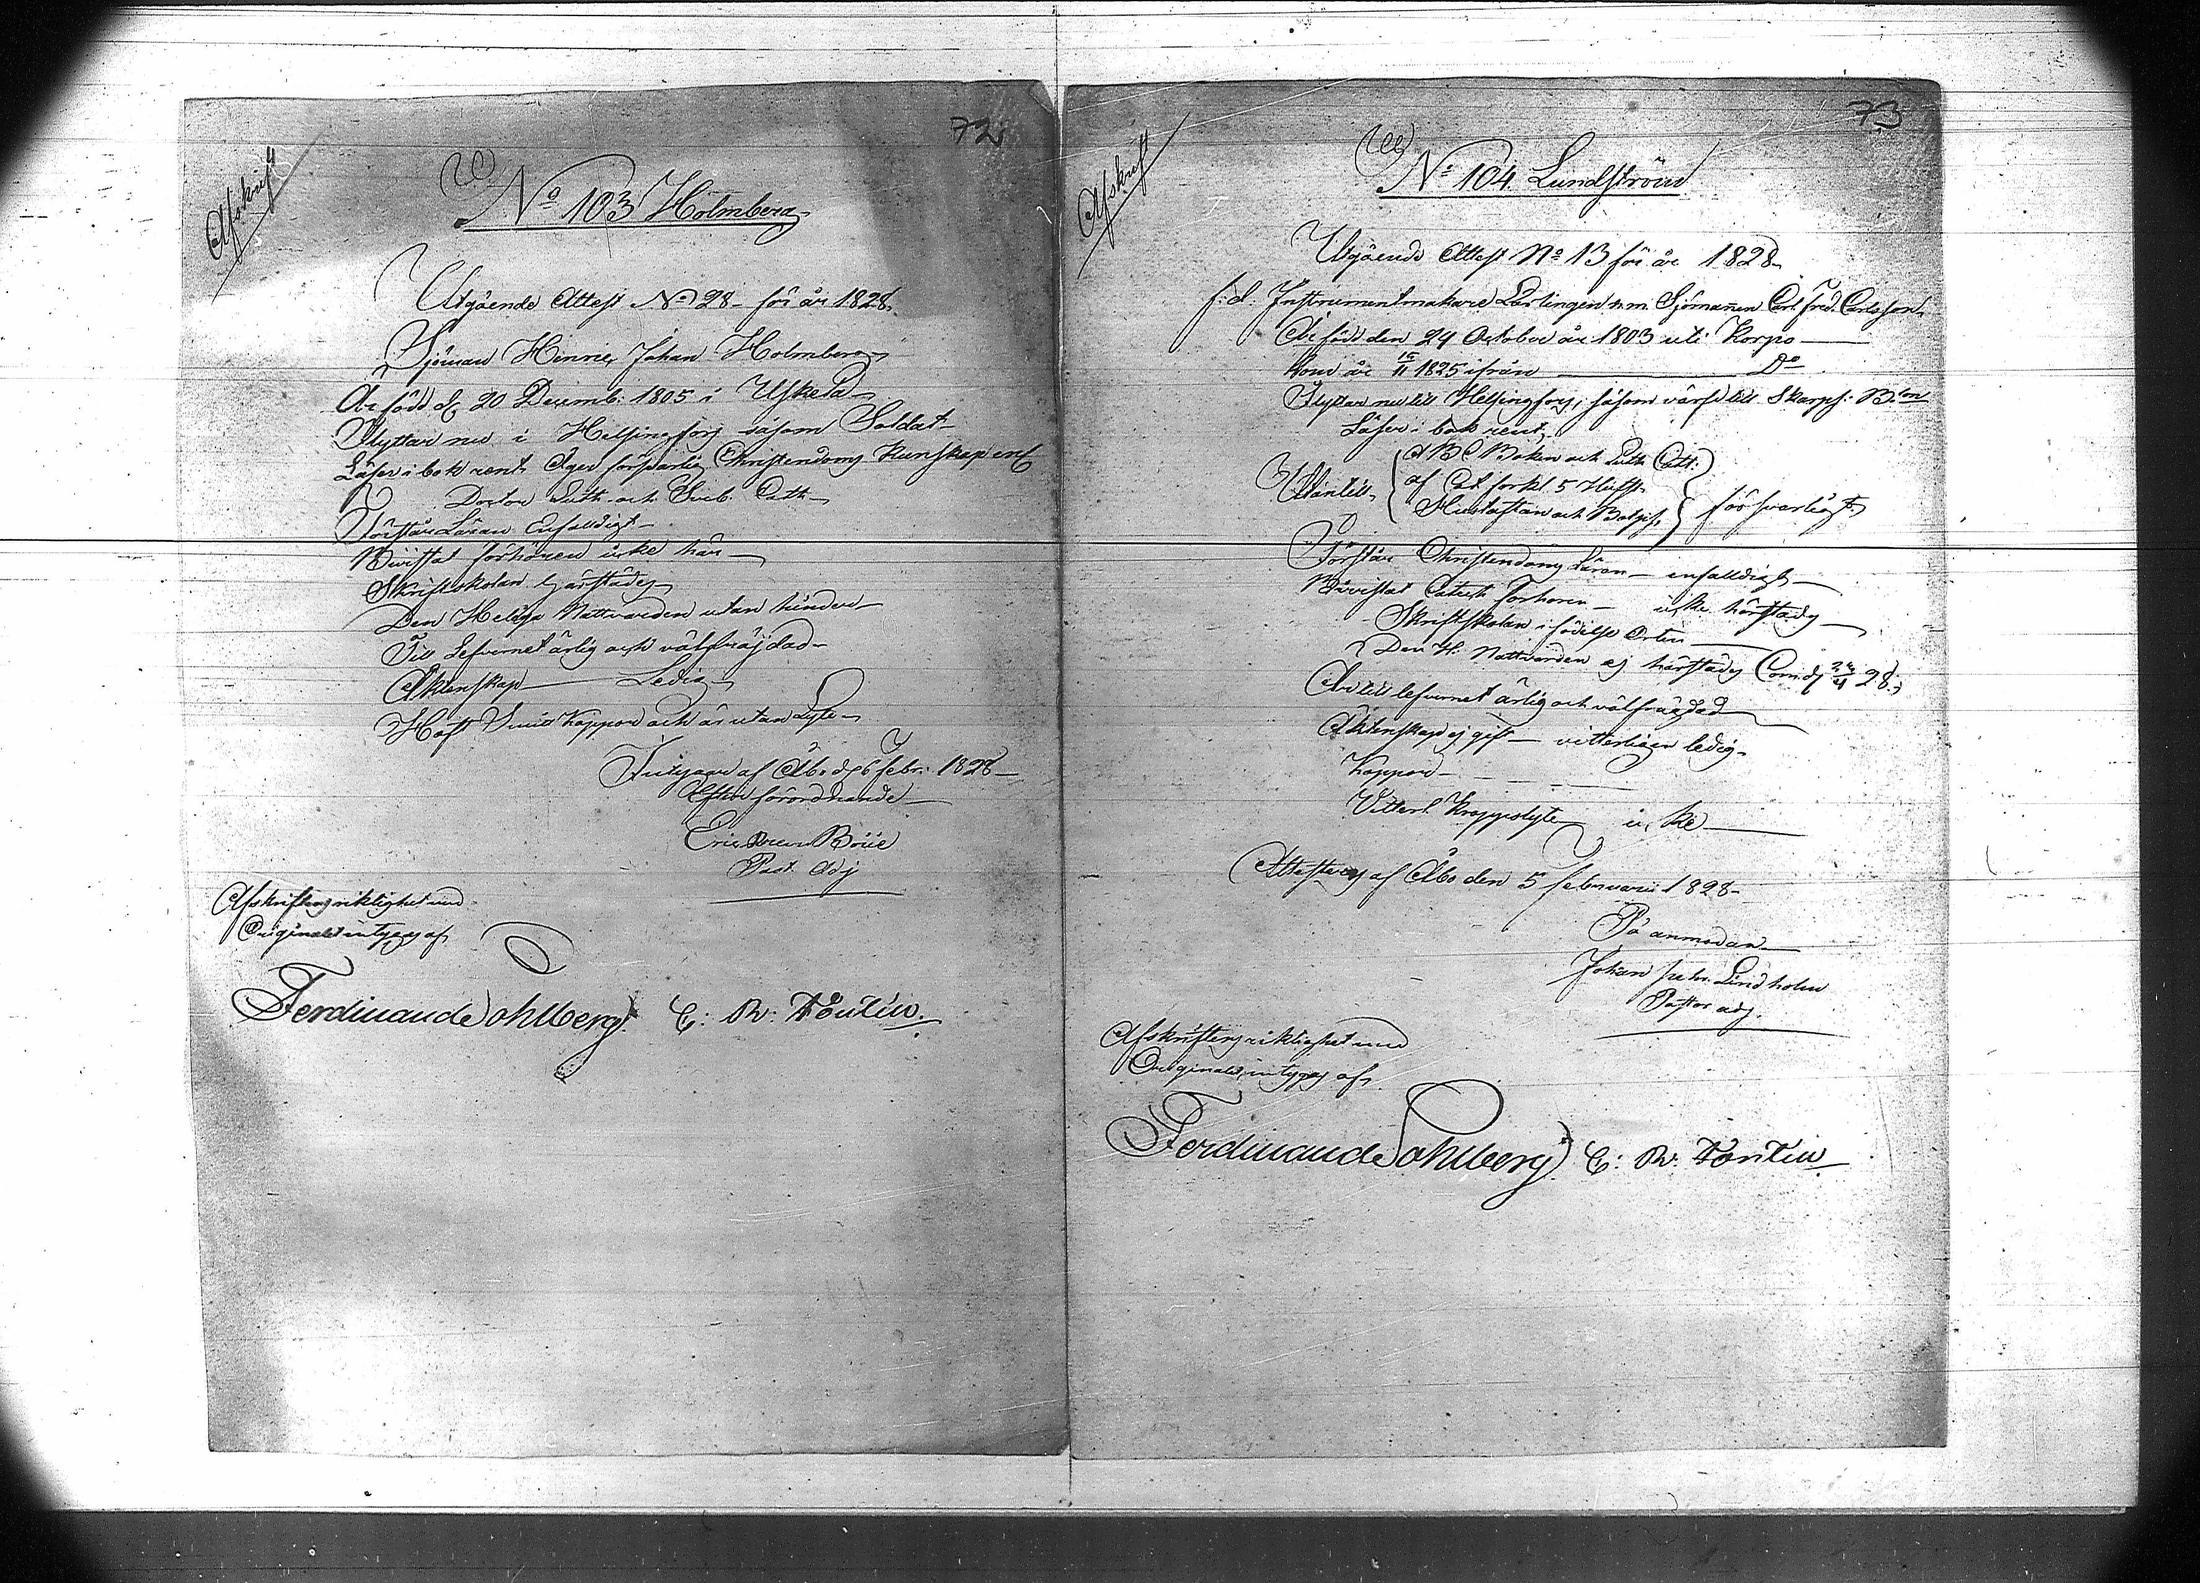 72
Afskrift
No 103 Holmberg
Utgående Attest No 28 för år 1828.
Sjöman Henric Johan Holmberg
Är född d. 20 Decemb: 1805 i Uskela
Flyttar nu i Helsingfors såsom Soldat
Läser i bok rent. Äger försvarlig Christendoms Kunskap enl
Doctor Luth. och Sveb. Cath.
Förstår Läran Enfaldigt
Bivistat förhören icke här
Skriftskolan härstädes
Den Heliga Nattvarden utan hinder
Till Lefvernet ärlig och välfräjdad
Äktenskap Ledig
Haft Koppor och är utan Lyte
Intygar af Åbo d. 6 febr. 1828
Efter förordnande
Eric Böie
Past. Adj
Afskriftens riktighet med
Originalet intygas af,
Ferdinand Sohlberg. C: R: Fontin.
73
Afskrift
No 104 Lundström
Utgående Attest No 13 för år 1828
f: d: Instrumentmakare Lärlingen n.m. Sjömannen Carl Fred. Carlsson,
Är född den 24 October år 1803 uti Korpo
kom år 1825 ifrån Do
Flyttar nu till Helsingfors, såsom värfd till Skarpsk: B:ton
Läser i bok rent,
Utantill, A B C Boken och Luth. Cat:
af Cat. förkl. 5 Hufst.
Hustaflan och Botps, försvarligt
Förstår Christendoms Läran enfaldigt
Bivistat Catech Förhören icke härstädes
Skriftskolan i födelse Orten
Den H. Nattvarden ej härstädes 28.
Är till lefvernet ärlig och välfräjdad
Äktenskap ej gift vitterligen ledig
Koppor
Vitterl. Kroppslyte icke
Attesteras af Åbo den 5 februarii 1828
På anmodan
Johan Lindholm
Pastor adj.
Afskriftens riktighet med
Originalet intygas af,
Ferdinand Sohlberg. C: R: Fontin.